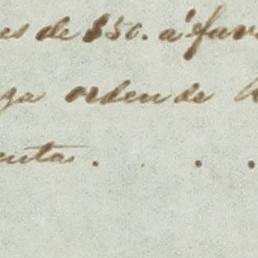 es de $50. á fav
ya orden de
enta . . . .